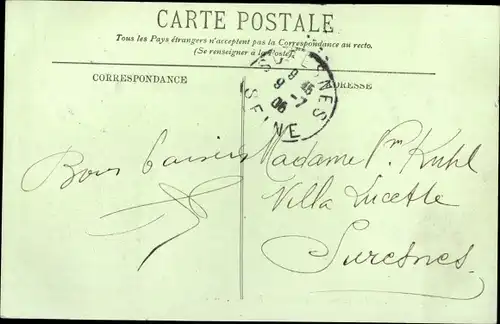 CARTE POSTALE
Tous les Pays étrangers n'acceptent pas la Correspondance au recto.
(Se renseigner à la Poste).
CORRESPONDANCE
ADRESSE
SURESNES
8 45
9 -7
06
SEINE
Bons baisers
Madame Pre Kuhl
Villa Lucette
Suresnes